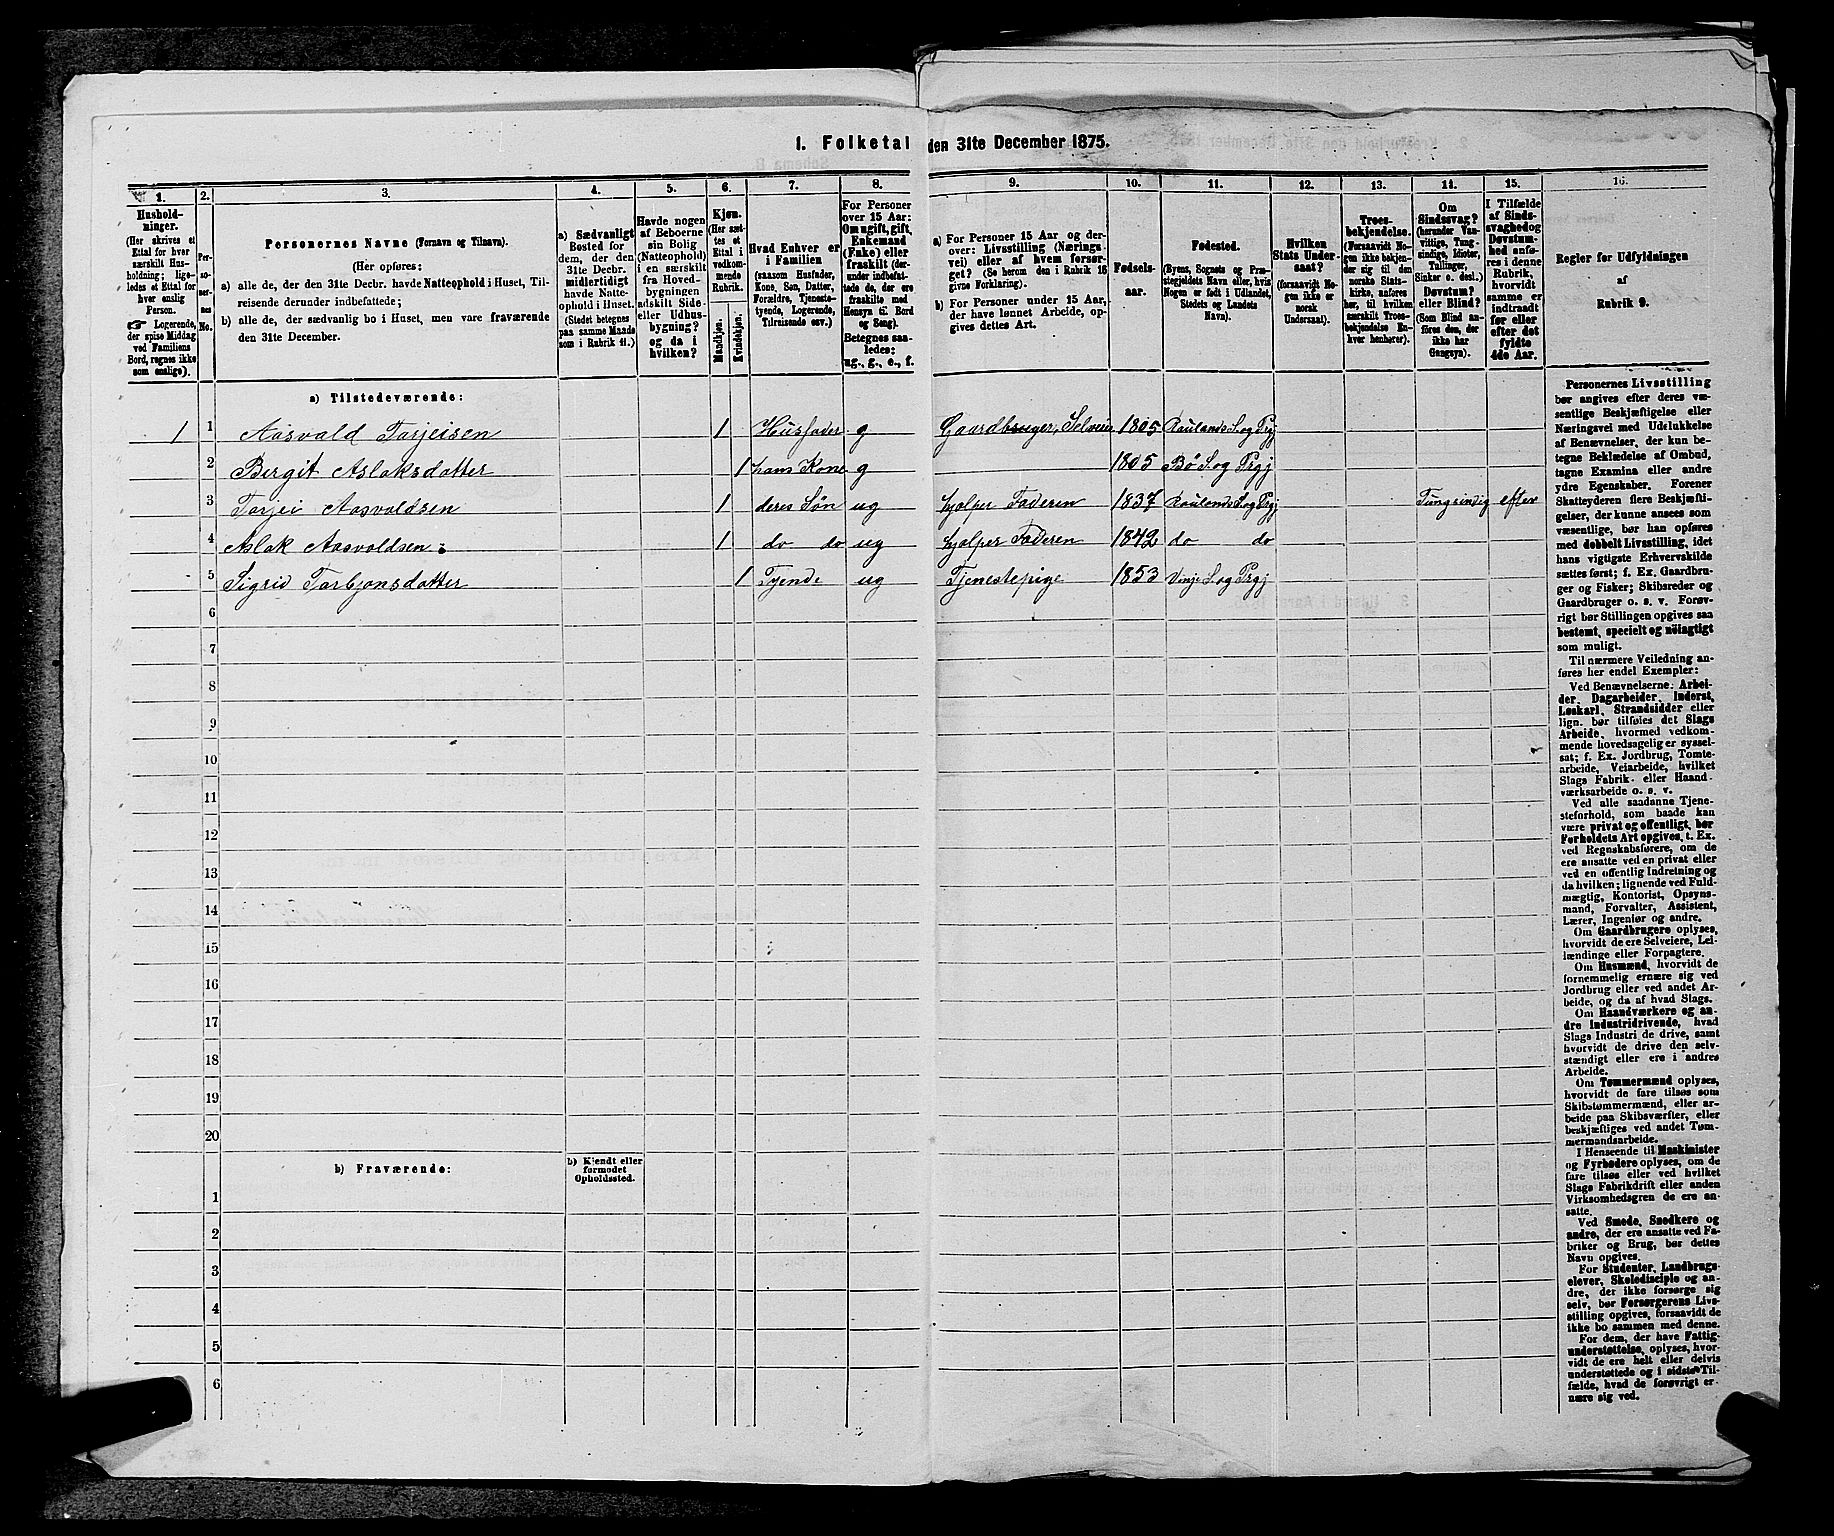 1. Folketal den 31te December 1875.
1. 2. 3. 4. 5. 6. 7. 8. 9. 10. 11. 12. 13. 14. 15. 16.
Hushold-
ninger.
(Her skrives et
Ettal for hver
særskilt Hus-
holdning; lige-
ledes et Ettal for
hver enslig
Person.
☞ Logerende,
der spise Middag
ved Familiens
Bord, regnes ikke
som enslige).
Per-
so-
ner-
nes
No.
Personernes Navne (Fornavn og Tilnavn).
(Her opføres:
a) alle de, der den 31te Decbr. havde Natteophold i Huset, Til-
reisende derunder indbefattede;
b) alle de, der sædvanlig bo i Huset, men vare fraværende
den 31te December.
a) Sædvanligt
Bosted for
dem, der den
31te Decbr.
midlertidigt
havde Natte-
ophold i Huset.
(Stedet betegnes
paa samme Maade
som i Rubrik 11.)
Havde nogen
af Beboerne
sin Bolig
(Natteophold)
i en særskilt
fra Hoved-
bygningen
adskilt Side-
eller Udhus-
bygning?
og da i
hvilken?
Kjøn.
(Her sæt-
tes et
Ettal i
vedkom-
mende
Rubrik.
Mandkjøn.
Kvindekjøn.
Hvad Enhver er
i Familien
(saasom Husfader,
Kone, Søn, Datter,
Forældre, Tjeneste-
tyende, Logerende,
Tilreisende osv.)
For Personer
over 15 Aar:
Om ugift, gift,
Enkemand
(Enke) eller
fraskilt (der-
under indbefat-
tede de, der ere
fraskilte med
Hensyn til Bord
og Seng).
Betegnes saa-
ledes:
ug., g., e., f.
a) For Personer 15 Aar og der-
over: Livsstilling (Nærings-
vei) eller af hvem forsør-
get? (Se herom den i Rubrik 16
givne Forklaring).
b) For Personer under 15 Aar,
der have lønnet Arbeide, op-
gives dettes Art.
Fødsels-
aar.
Fødested.
(Byens, Sognets og Præ-
stegjeldets Navn eller, hvis
Nogen er født i Udlandet,
Stedets og Landets
Navn).
Hvilken
Stats Under-
saat?
(forsaavidt No-
gen ikke er
norsk
Undersaat).
Troes-
bekjendelse.
(Forsaavidt No-
gen ikke bekjen-
der sig til den
norske Stats-
kirke, anføres
her, til hvilken
særskilt Troes-
bekjendelse En-
hver henhører).
Om
Sindssvag?
(herunder Van-
vittige, Tung-
sindige, Idioter,
Tullinger,
Sinker o. desl.)
Døvstum?
eller Blind?
(Som Blind an-
føres den, der
ikke har
Gangsyn).
I Tilfælde
af Sinds-
svaghed og
Døvstum-
hed anfø-
res i denne
Rubrik,
hvorvidt
samme er
indtraadt
før eller
efter det
fyldte
4de Aar.
Regler for Udfyldningen
af
Rubrik 9.
a) Tilstedeværende:
1 1 Aasvald Tarjeisen 1 Husfader g Gaardbruger, Selveier 1805 Raulands S. og Prgj
2 Birgit Aslaksdatter 1 hans Kone g 1805 Bø S. og Prgj
3 Tarjei Aasvaldsen 1 deres Søn ug hjælper Faderen 1837 Raulands S. og Prgj Tungsindig efter
4 Aslak Aasvaldsen 1 do do ug hjælper Faderen 1842 do do
5 Sigrid Torbjønsdatter 1 Tyende ug Tjenestepige 1853 Vinje S. og Prgj
6
7
8
9
10
11
12
13
14
15
16
17
18
19
20
b) Fraværende:
b) Kjendt eller
formodet
Opholdssted.
1
2
3
4
5
6
Personernes Livsstilling
bør angives efter deres væ-
sentlige Beskjæftigelse eller
Næringsvei med Udelukkelse
af Benævnelser, der kun be-
tegne Beklædelse af Ombud,
tagne Examina eller andre
ydre Egenskaber. Forener
Skatteyderen flere Beskjæfti-
gelser, der kunne ansees som
væsentlige, bør han opføres
med dobbelt Livsstilling, idet
hans vigtigste Erhvervskilde
sættes først; f. Ex. Gaardbru-
ger og Fisker; Skibsreder og
Gaardbruger o. s. v. Forøv-
rigt bør Stillingen opgives saa
bestemt, specielt og nöiagtigt
som muligt.
Til nærmere Veiledning an-
føres her endel Exempler:
Ved Benævnelserne: Arbei-
der, Dagarbeider, Inderst,
Løskarl, Strandsidder eller
lign. bør tilføies det Slags
Arbeide, hvormed vedkom-
mende hovedsagelig er syssel-
sat; f. Ex. Jordbrug, Tomte-
arbeide, Veiarbeide, hvilket
Slags Fabrik- eller Haand-
værksarbeide o. s. v.
Ved alle saadanne Tjene-
steforhold, som baade kan
være privat og offentligt, bør
Forholdets Art opgives, t. Ex.
ved Regnskabsførere, om de
ere ansatte ved en privat eller
ved en offentlig Indretning og
da hvilken; lignende ved Fuld-
mægtig, Kontorist, Opsyns-
mand, Forvalter, Assistent,
Lærer, Ingeniør og andre.
Om Gaardbrugere oplyses,
hvorvidt de ere Selveiere, Lei-
lændinge eller Forpagtere.
Om Husmænd, hvorvidt de
fornemmelig ernære sig ved
Jordbrug eller ved andet Ar-
beide, og da af hvad Slags.
Om Haandværkere og an-
dre Industridrivende, hvad
Slags Industri de drive, samt
hvorvidt de drive den selv-
stændigt eller ere i andres
Arbeide.
Om Tømmermænd oplyses,
hvorvidt de fare tilsøs som
Skibstømmermænd, eller ar-
beide paa Skibsværfter, eller
beskjæftiges ved andet Tøm-
mermandsarbeide.
I Henseende til Maskinister
og Fyrbødere oplyses, om de
fare tilsøs eller ved hvilket
Slags Fabrikdrift eller anden
Virksomhedsgren de ere an-
satte.
Ved Smede, Snedkere og
andre, der ere ansatte ved Fa-
briker og Brug, bør dettes
Navn opgives.
For Studenter, Landbrugs-
elever, Skoledisciple og an-
dre, der ikke forsørge sig
selv, bør Forsørgerens Livs-
stilling opgives, forsaavidt de
ikke bo sammen med denne.
For dem, der have Fattig-
understøttelse, oplyses, hvor-
vidt de ere helt eller delvis
understøttede og i sidste Til-
fælde, hvad de forøvrigt er-
nære sig ved.